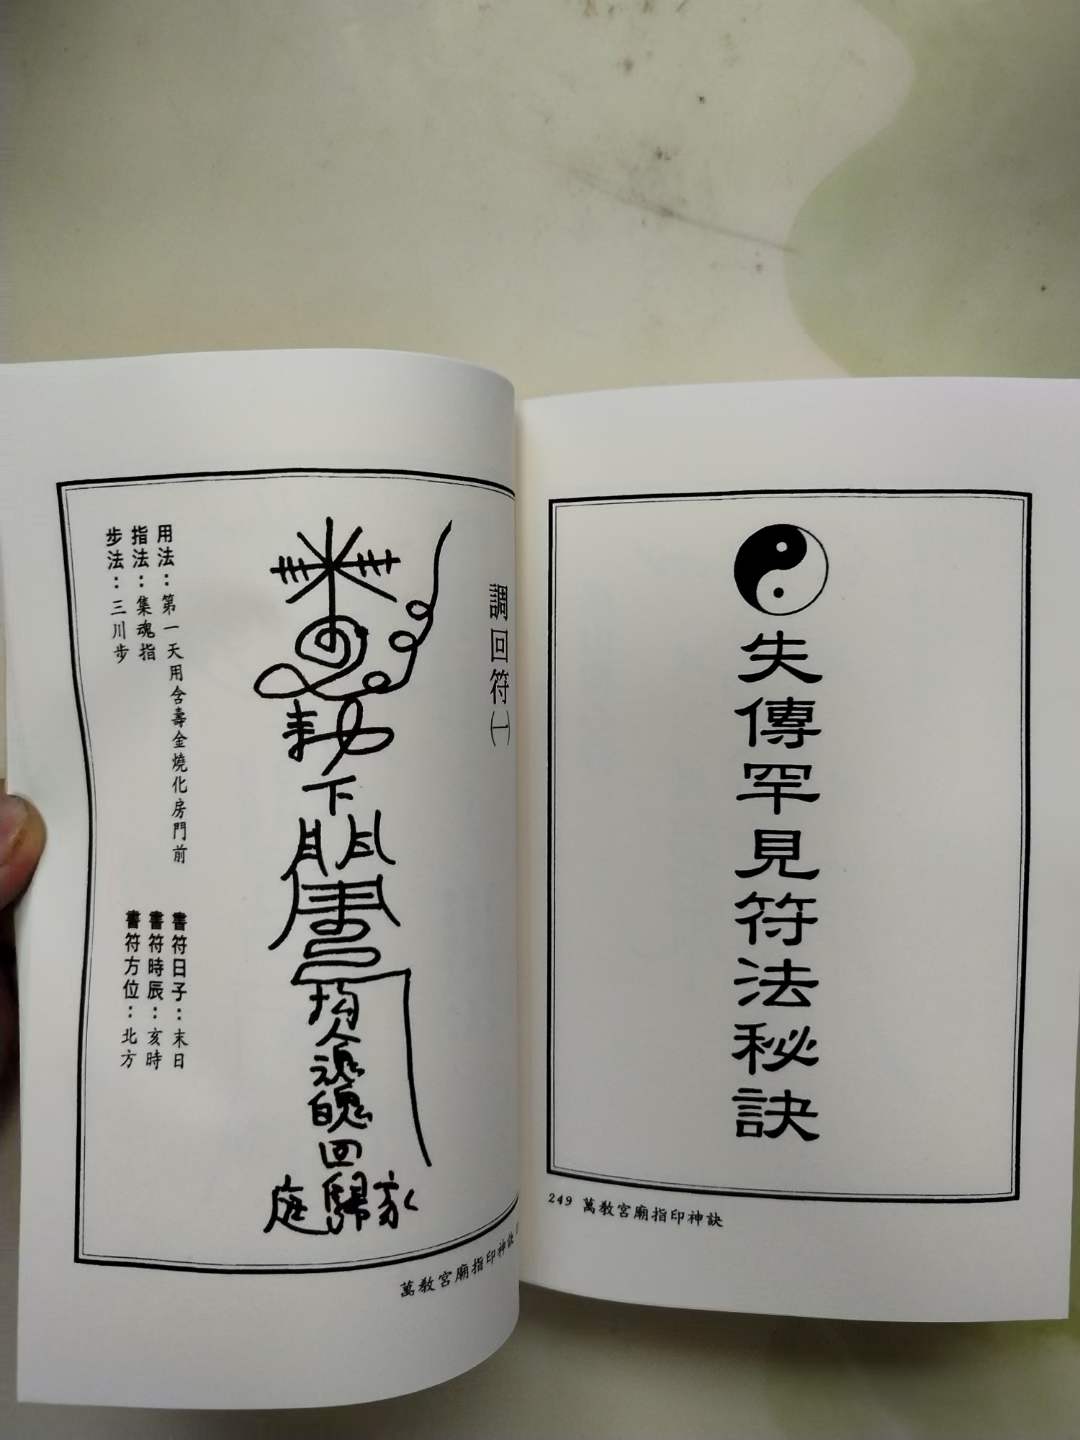 失傳罕見符法秘訣
249 萬教宮廟指印神訣
調回符㈠
勅
下
均人魂魄回
歸家庭
用法：第一天用含壽金燒化房門前
指法：集魂指
步法：三川步
書符日子：末日
書符時辰：亥時
書符方位：北方
萬教宮廟指印神訣